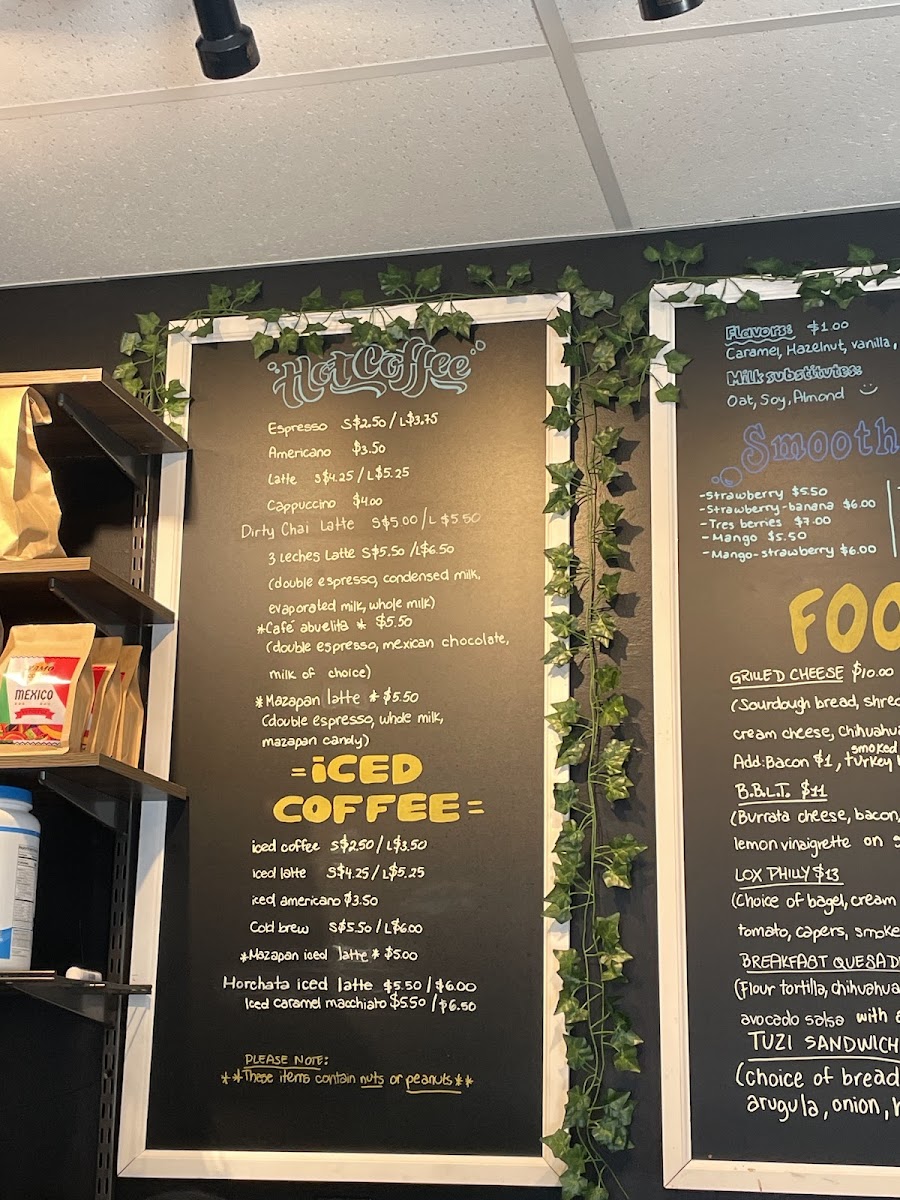 Hot Coffee
Espresso S$2.50/L$3.75
Americano $3.50
Latte S$4.25/L$5.25
Cappuccino $4.00
Dirty Chai Latte S$5.00/L$5.50
3 Leches Latte S$5.50/L$6.50
(double espresso, condensed milk,
evaporated milk, whole milk)
*Café abuelita * $5.50
(double espresso, mexican chocolate,
milk of choice)
*Mazapan latte * $5.50
(double espresso, whole milk,
mazapan candy)
=iCED
COFFEE=
iced coffee S$2.50/L$3.50
iced latte S$4.25/L$5.25
iced americano $3.50
Cold brew S$5.50/L$6.00
*Mazapan iced latte* $5.00
Horchata iced latte $5.50/$6.00
Iced caramel macchiato $5.50/$6.50
PLEASE NOTE:
**These items contain nuts or peanuts**
Flavors: $1.00
Caramel, Hazelnut, vanilla,
Milk substitutes:
Oat, Soy, Almond
Smooth
-Strawberry $5.50
-Strawberry-banana $6.00
-Tres berries $7.00
-Mango $5.50
-Mango-strawberry $6.00
FOO
GRILLED CHEESE $10.00
(Sourdough bread, shre
cream cheese, chihuahu
smoked
Add: Bacon $1, turkey
B.B.L.T. $11
(Burrata cheese, bacon,
lemon vinaigrette on
LOX PHILLY $13
(Choice of bagel, cream
tomato, capers, smoke
BREAKFAST QUESAD
(Flour tortilla, chihuahua
avocado salsa with
TUZI SANDWICH
(choice of bread
arugula, onion,
MEXICO